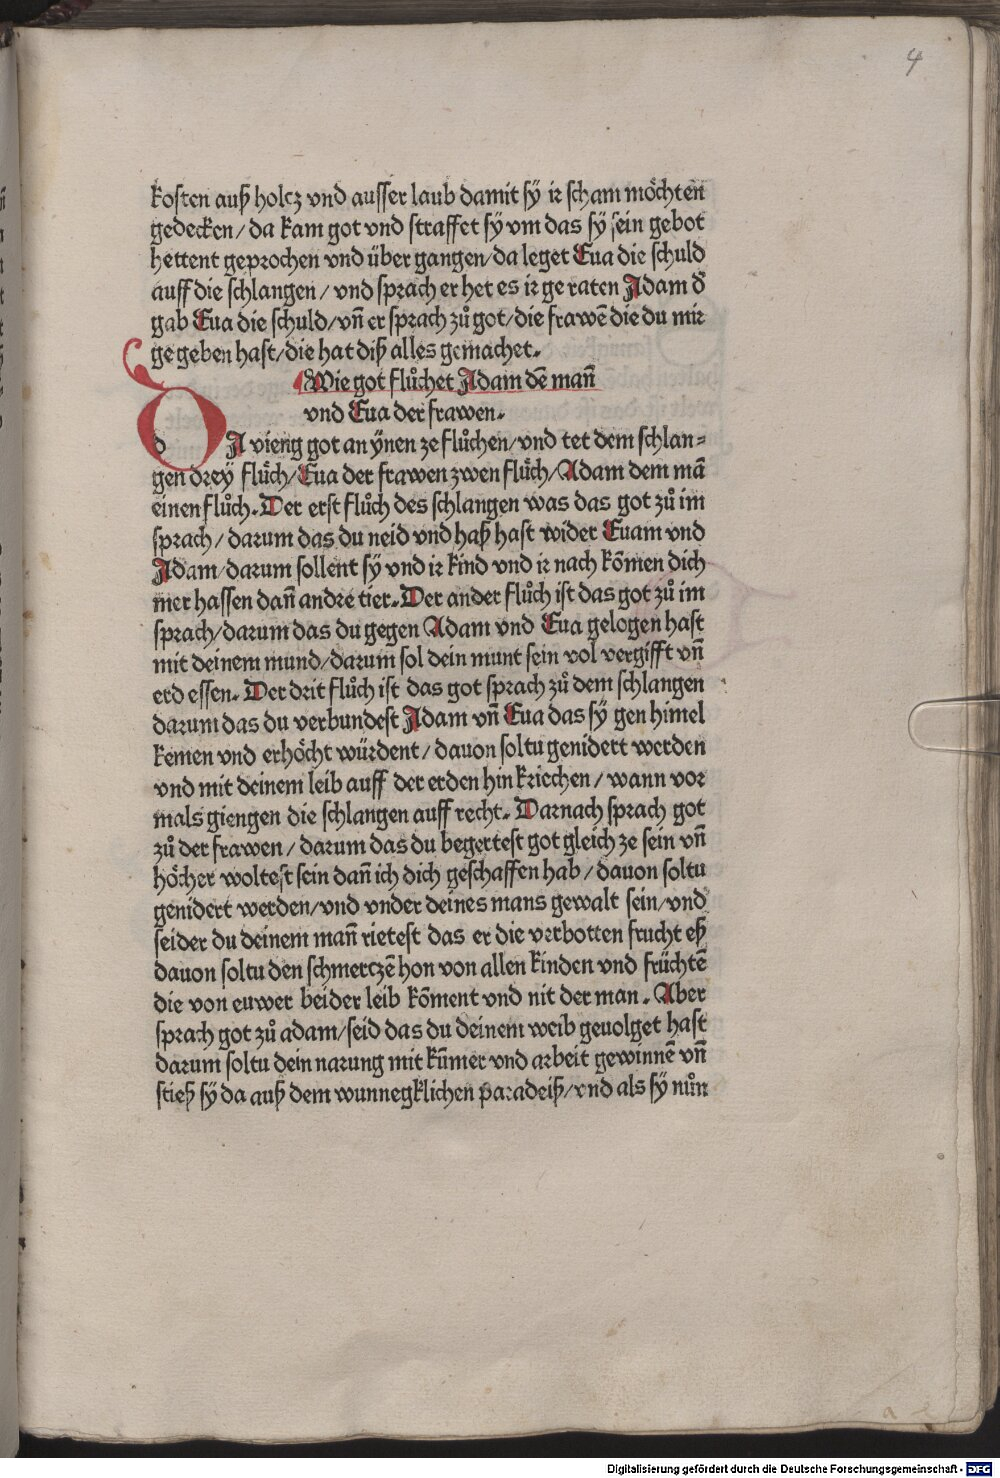 4
kosten auß holcz vnd ausser laub damit sÿ ir scham möchten
gedecken/ da kam got vnd straffet sÿ vm das sÿ sein gebot
hettent geprochen vnd über gangen/ da leget Eua die schuld
auff die schlangen/ vnd sprach er het es ir ge raten Adam d̄
gab Eua die schuld/ vn̄ er sprach zů got/ die frawē die du mir
ge geben hast/ die hat diß alles gemachet.
Wie got flůchet Adam dē man̄
vnd Eua der frawen.
dA vieng got an ÿnen ze flůchen/ vnd tet dem schlan⸗
gen dreÿ flůch/ Eua der frawen zwen flůch/ Adam dem mā
einen flůch. Der erst flůch des schlangen was das got zů im
sprach/ darum das du neid vnd haß hast wider Euam vnd
Adam/ darum sollent sÿ vnd ir kind vnd ir nach kōmen dich
mer hassen dan̄ andre tier. Der ander flůch ist das got zů im
sprach/ darum das du gegen Adam vnd Eua gelogen hast
mit deinem mund/ darum sol dein munt sein vol vergifft vn̄
erd essen. Der drit flůch ist das got sprach zů dem schlangen
darum das du verbundest Adam vn̄ Eua das sÿ gen himel
kemen vnd erhöcht würdent/ dauon soltu genidert werden
vnd mit deinem leib auff der erden hin kriechen/ wann vor
mals giengen die schlangen auff recht. Darnach sprach got
zů der frawen/ darum das du begertest got gleich ze sein vn̄
höcher woltest sein dan̄ ich dich geschaffen hab/ dauon soltu
genidert werden/ vnd vnder deines mans gewalt sein/ vnd
seider du deinem man̄ rietest das er die verbotten frucht eß
dauon soltu den schmerczē hon von allen kinden vnd früchtē
die von euwer beider leib kōment vnd nit der man. Aber
sprach got zů adam/ seid das du deinem weib geuolget hast
darum soltu dein narung mit kūmer vnd arbeit gewinnē vn̄
stieß sÿ da auß dem wunnegklichen paradeiß/ vnd als sÿ nůn
Digitalisierung gefördert durch die Deutsche Forschungsgemeinschaft - DFG